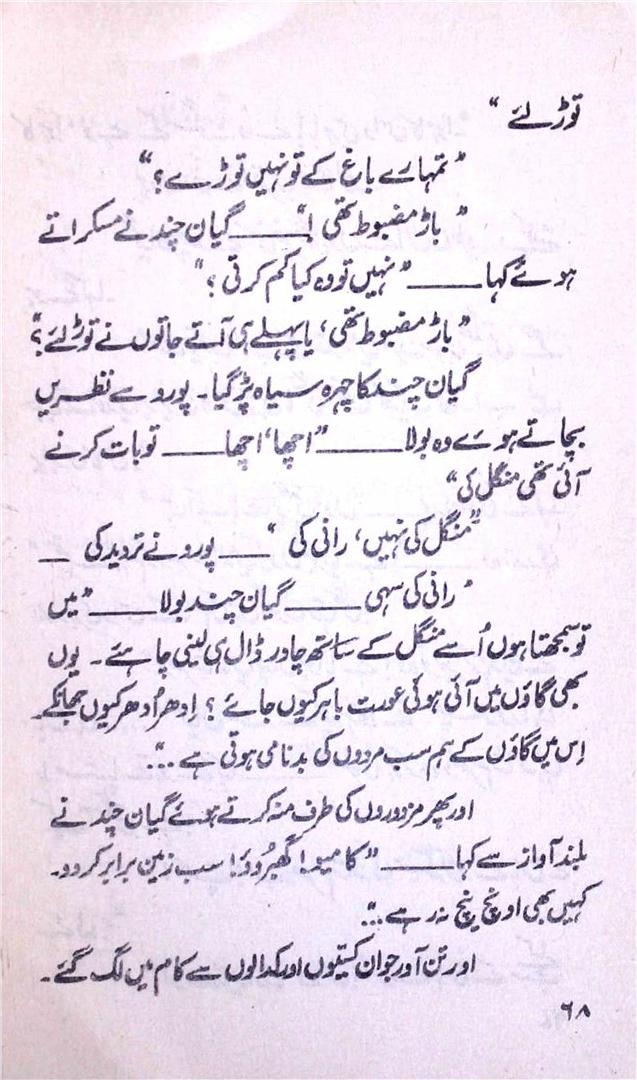 توڑ لئے “
“ تمہارے باغ کے تو نہیں توڑے ؟ “
“ باڑ مضبوط تھی ! “ ــــــ گیان چند نے مسکراتے
ہوئے کہا ــــــ “ نہیں تو وہ کیا کم کرتی ؟ “
“ باڑ مضبوط تھی، یا پہلے ہی آتے جاتوں نے توڑ لئے ؟ “
گیان چند کا چہرہ سیاہ پڑ گیا۔ پورو سے نظریں
بچاتے ہوئے وہ بولا ــــــ “ اچھا، اچھا ــــــ تو بات کرنے
آئی تھی منگل کی “
“ منگل کی نہیں، رانی کی “ ــــ پورو نے تردید کی ــــ
“ رانی کی سہی ــــــ گیان چند بولا ــــــ “ میں
تو سمجھتا ہوں اُسے منگل کے ساتھ چادر ڈال ہی لینی چاہئے۔ یوں
بھی گاؤں میں آئی ہوئی عورت باہر کیوں جائے ؟ اِدھر اُدھر کیوں جھانکے
اِس میں گاؤں کے ہم سب مردوں کی بدنامی ہوتی ہے ... “
اور پھر مزدوروں کی طرف منہ کرتے ہوئے گیان چند نے
بلند آواز سے کہا ــــــ “ کامیو! گھبرُوؤ! سب زمین برابر کر دو۔
کہیں بھی اونچ نیچ نہ رہے ... “
اور تن آور جوان کسّیوں اور کدالوں سے کام میں لگ گئے۔
۶۸